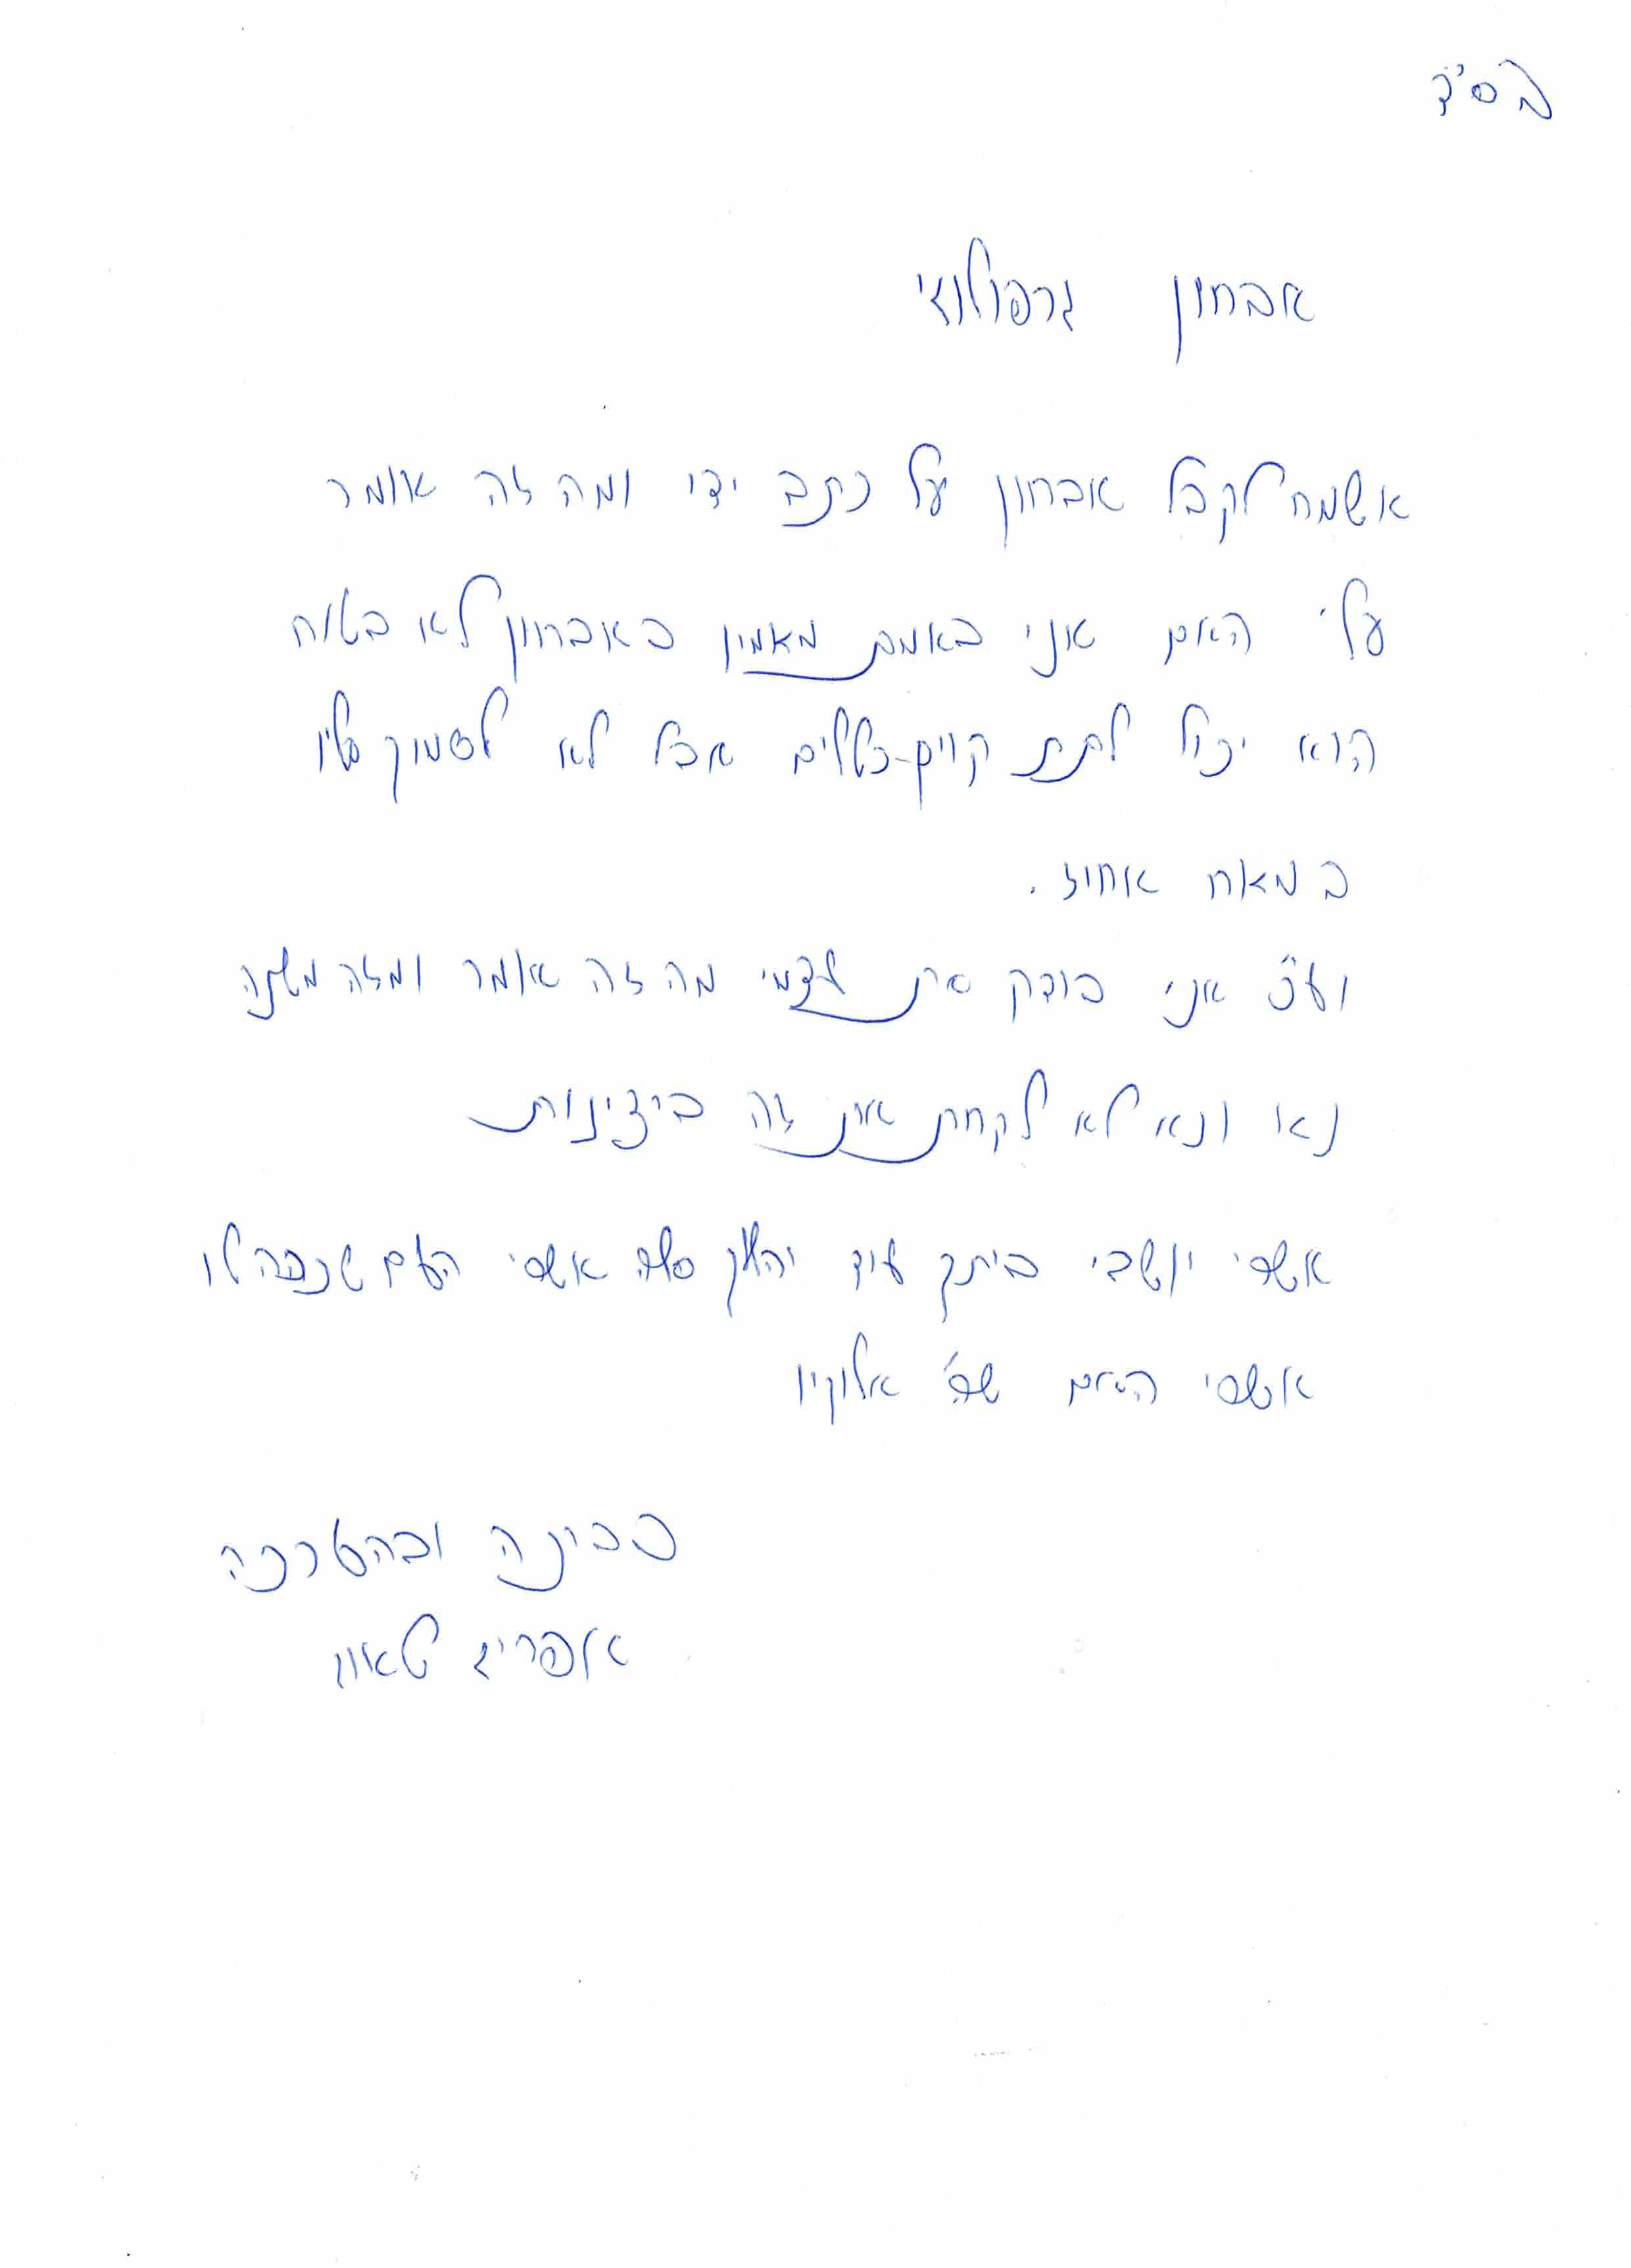 בס"ד
אבחון גרפולוגי
אשמח לקבל אבחון על כתב ידי ומה זה אומר
עלי האם אני באמת מאמין באבחון לא בטוח
הוא יכול לתת קווים-כללים אבל לא לסמוך עליו
במאה אחוז.
ועכ"פ אני בודק את עצמי מה זה אומר ומזה משנה
נא ונא לא לקחת את זה בידענות
אשרי יושבי ביתך עוד יהללוך סלה אשרי העם שככה לו
אשרי העם שה' אלוקיו
בבינה ובהערכה